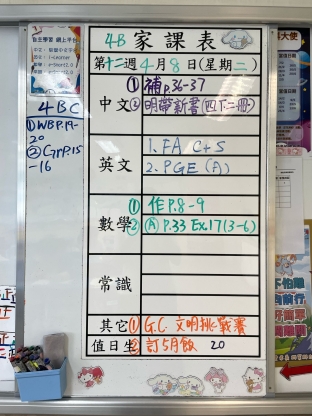 自主學習 網上平台
4B 家課表
第十二週 4月8日(星期二)
4BC
①WB P.19-
20
②Grp.15
-16
中文
①補p.36-37
②明帶新書(四下二冊)
英文
1. FA C+S
2. PGE (A)
數學
①作P.8-9
②(A) P.33 Ex.17(3-6)
常識
其它
①G.C. 文明挑戰賽
值日生
②訂5月飯 20